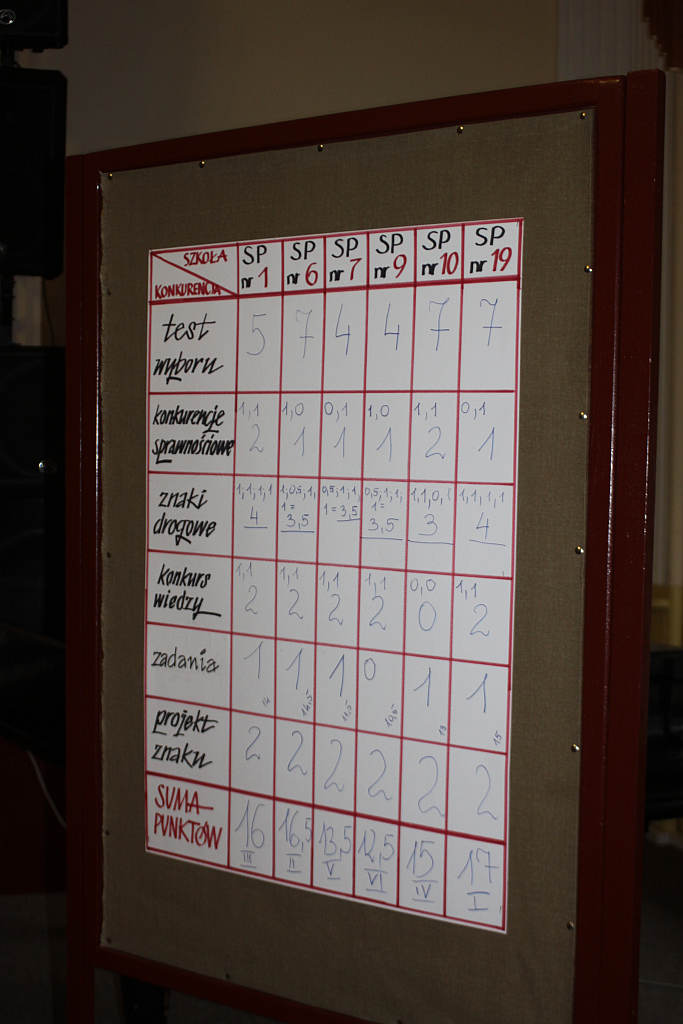 SZKOŁA
KONKURENCJA
SP nr 1
SP nr 6
SP nr 7
SP nr 9
SP nr 10
SP nr 19
test wyboru
5 7 4 4 7 7
konkurencje sprawnościowe
1,1 1,0 0,1 1,0 1,1 0,1
2 1 1 1 2 1
znaki drogowe
1,1,1,1 1,0,5,1, 0,5,1,1, 0,5,1,1, 1,1,0,1 1,1,1,1
1= 1=3,5 1=
4 3,5 3,5 3 4
konkurs wiedzy
1,1 1,1 1,1 1,1 0,0 1,1
2 2 2 2 0 2
zadania
1 1 1 0 1 1
14 14,5 11,5 10,5 13 15
projekt znaku
2 2 2 2 2 2
SUMA PUNKTÓW
16 16,5 13,5 12,5 15 17
III II V VI IV I